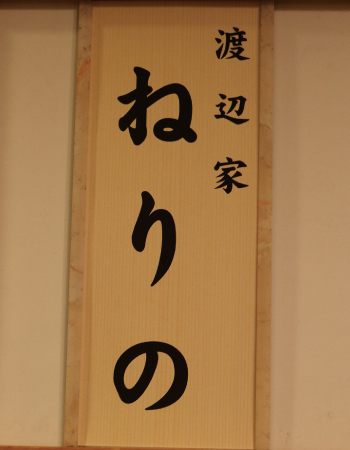 渡辺家
ねりの